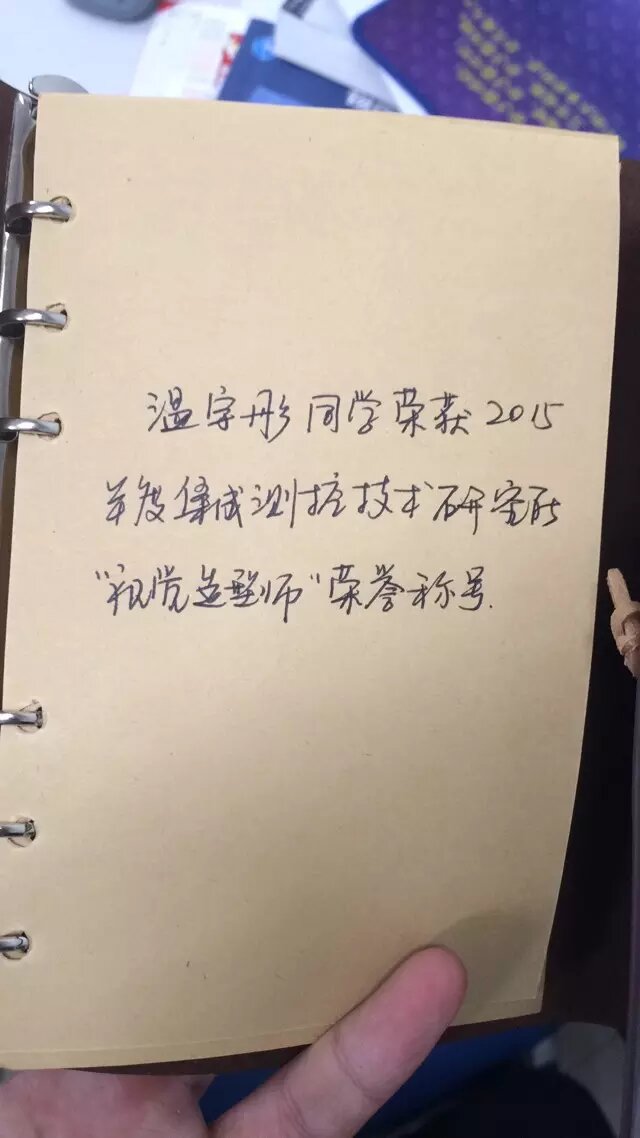 温宇彤同学荣获2015
年度集成测控技术研究所
“视觉造型师”荣誉称号.